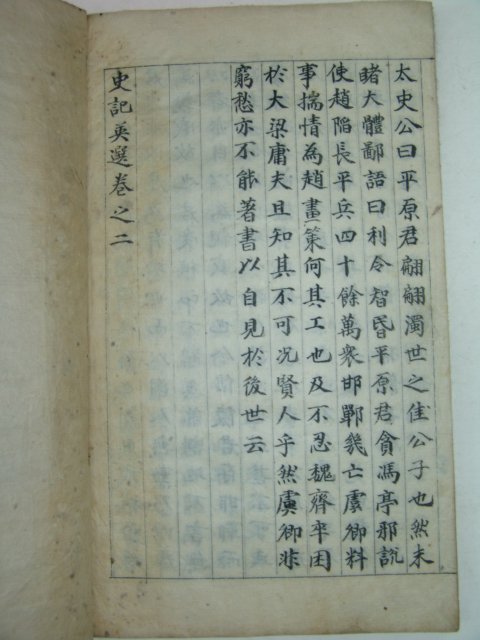 太史公曰平原君翩翩濁世之佳公子也然未
睹大體鄙語曰利令智昏平原君貪馮亭邪說
使趙陷長平兵四十餘萬衆邯鄲幾亡虞卿料
事揣情為趙畫策何其工也及不忍魏齊卒困
於大梁庸夫且知其不可况賢人乎然虞卿非
窮愁亦不能著書以自見於後世云
史記英選卷之二